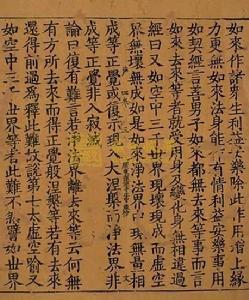 如來作諸衆生利益安樂除此作用增上
力更無如來法身能作有情利益安樂事用
如契經言善男子如來都無去來等事而言
如去來等者就受用身及變化身無相違過
經曰又如空中三千世界現壞現成而虛空
界無壞無成如是如來淨法界中現無量相
成等正覺或復示現入大涅槃而淨法界非
成等正覺非入寂滅
論曰復有難言若淨法界離去來等云何無
有去來方所而得正覺般涅槃等若有去來
還得前過爲釋此難故說第七太虛空喻又
如空中三千世界等者此難不然譬如世界